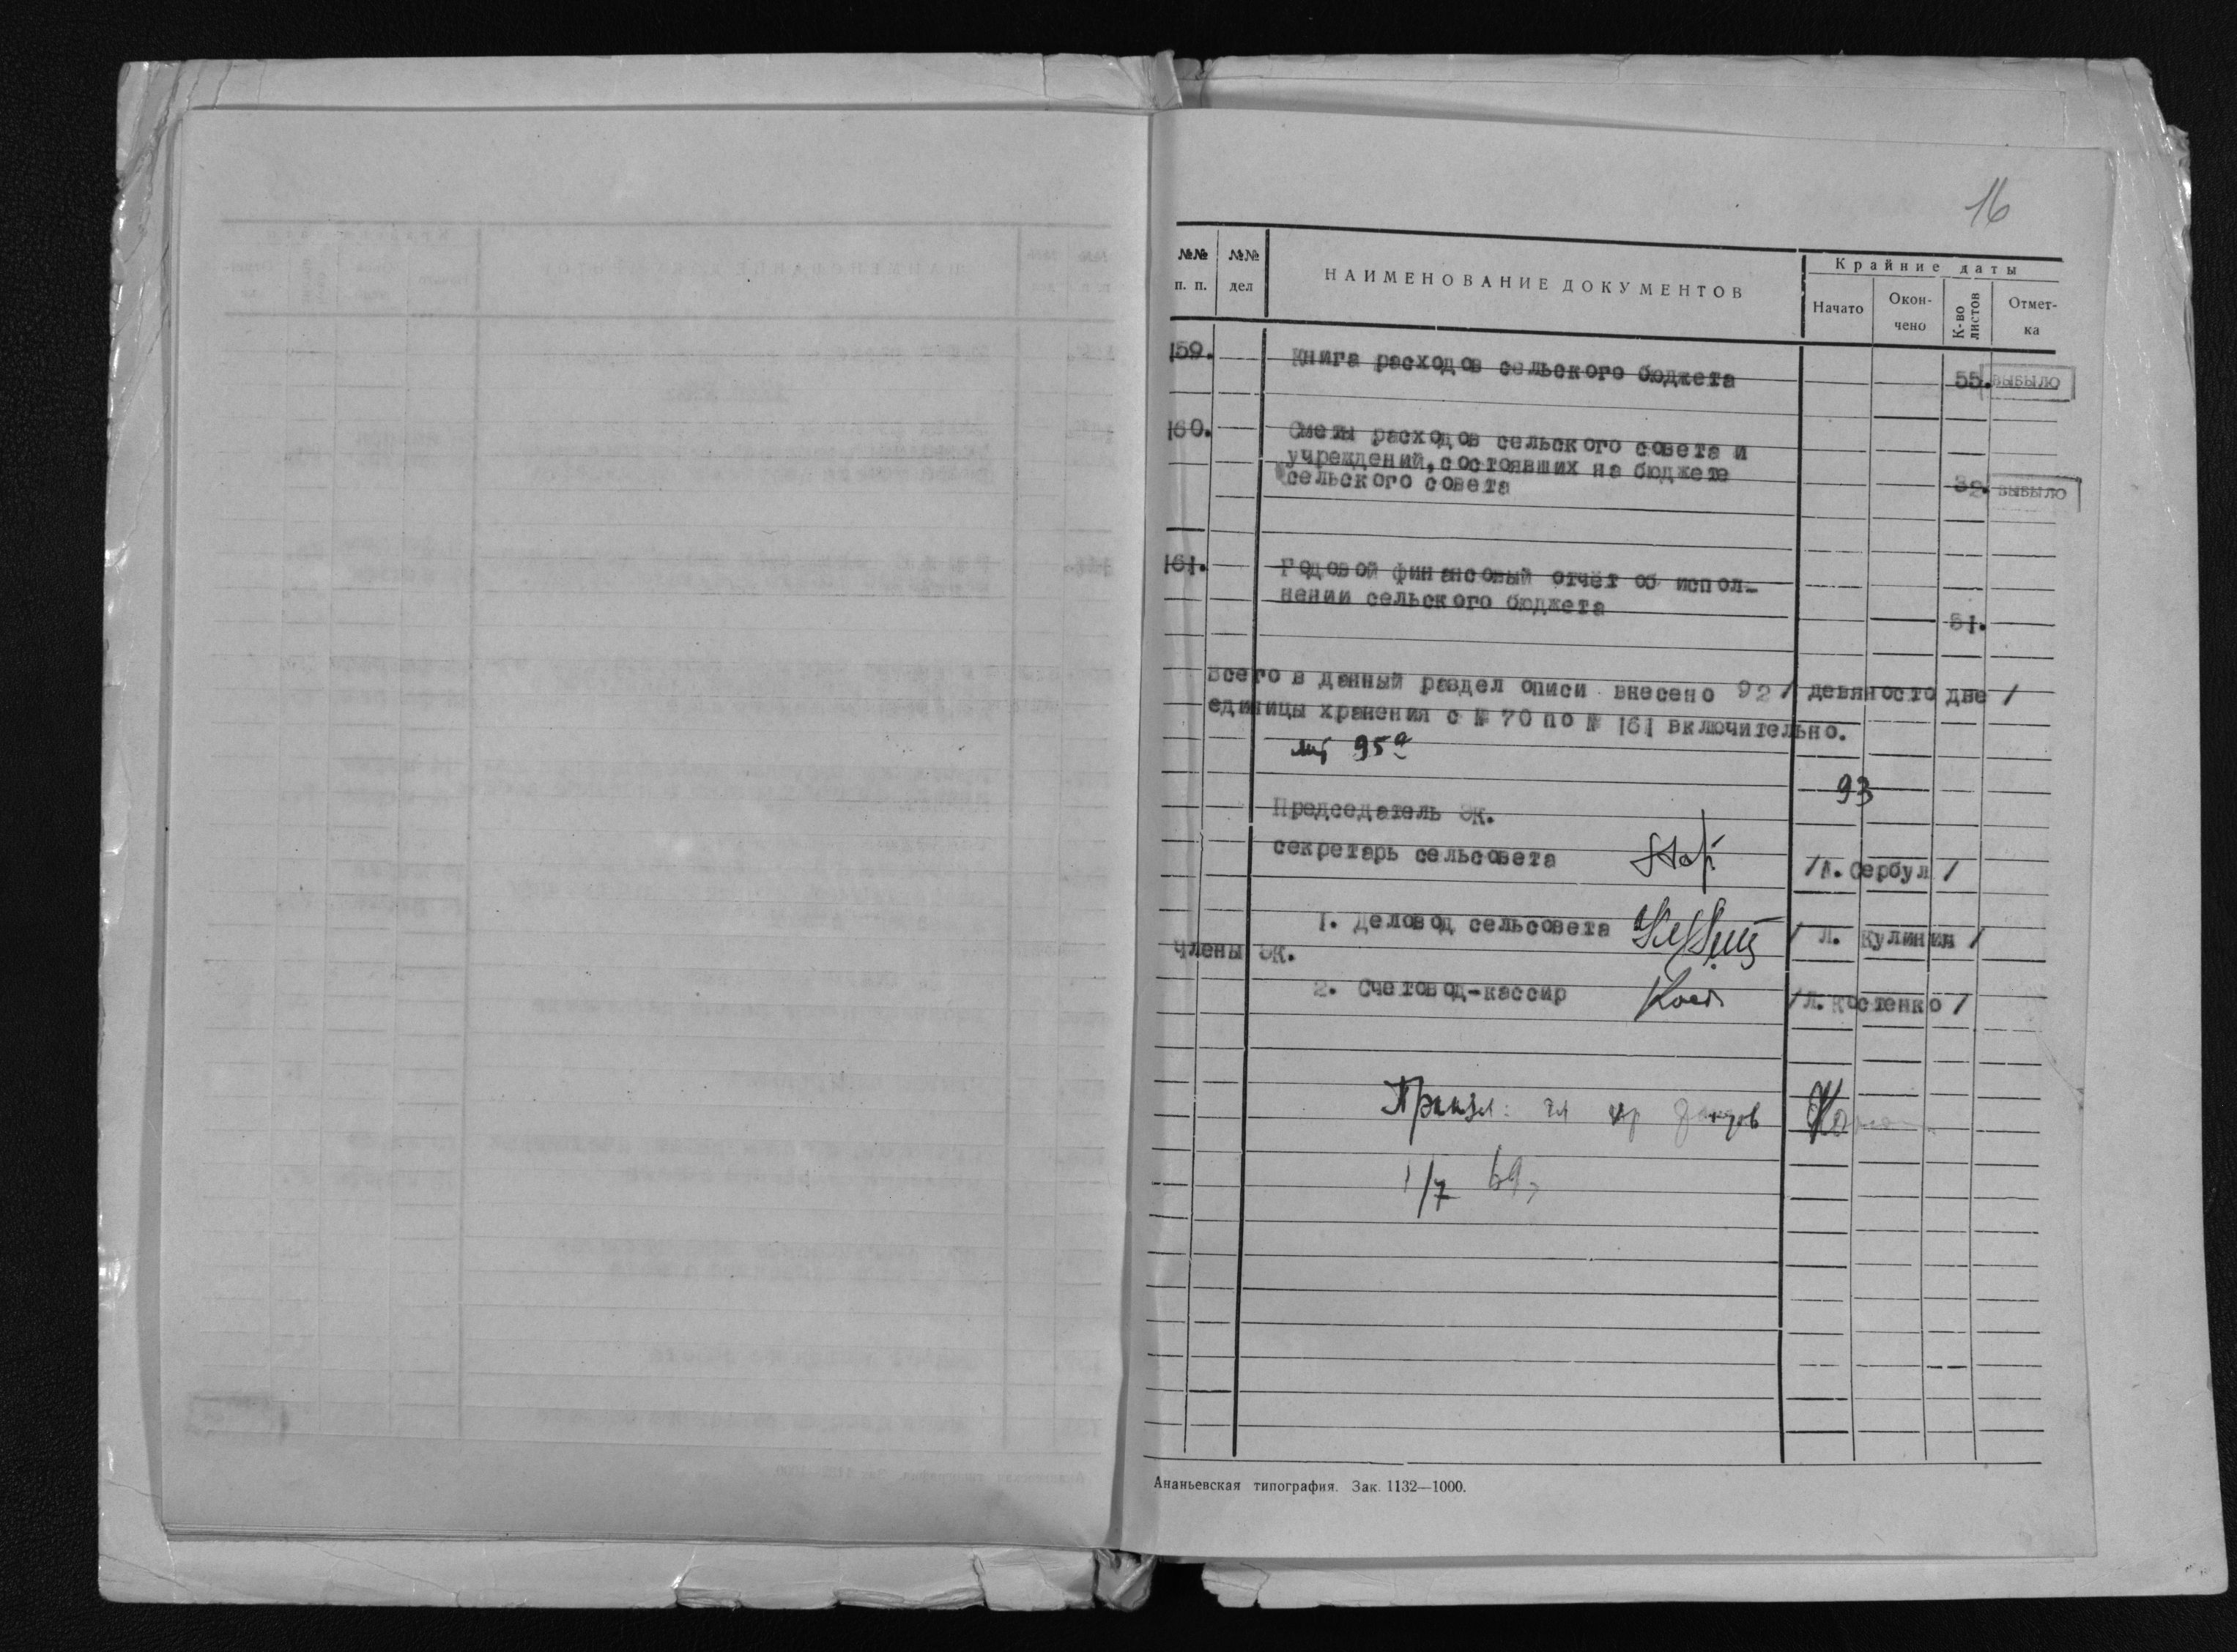 16
№№ п. п. №№ дел НАИМЕНОВАНИЕ ДОКУМЕНТОВ Крайние даты
Начато Окон-чено К-во листов Отмет-ка
159. Книга расходов сельского бюджета 55. ВЫБЫЛО
160. Сметы расходов сельского совета и
учреждений, состоявших на бюджете
сельского совета 32. ВЫБЫЛО
161. Годовой финансовый отчёт об испол-
нении сельского бюджета 31.
Всего в данный раздел описи внесено 92 / девяносто две /
единицы хранения с № 70 по № 161 включительно.
лит 95а
93
Председатель ЭК.
секретарь сельсовета /А. Сербул/
1. Деловод сельсовета / Л. Кулинич /
Члены ЭК.
2. Счетовод-кассир /Л. Костенко /
Принял: фондов
1/7 69
Ананьевская типография. Зак. 1132—1000.